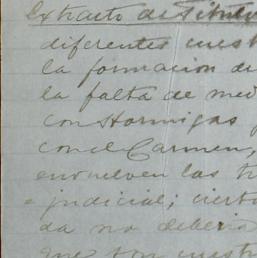 Extracto de Titulo
diferentes cuest
la formacion de
la falta de med
con Hormigas
con el Carmen,
envuelven las tr
judicial; cierto
da no deberia
que son cuestio